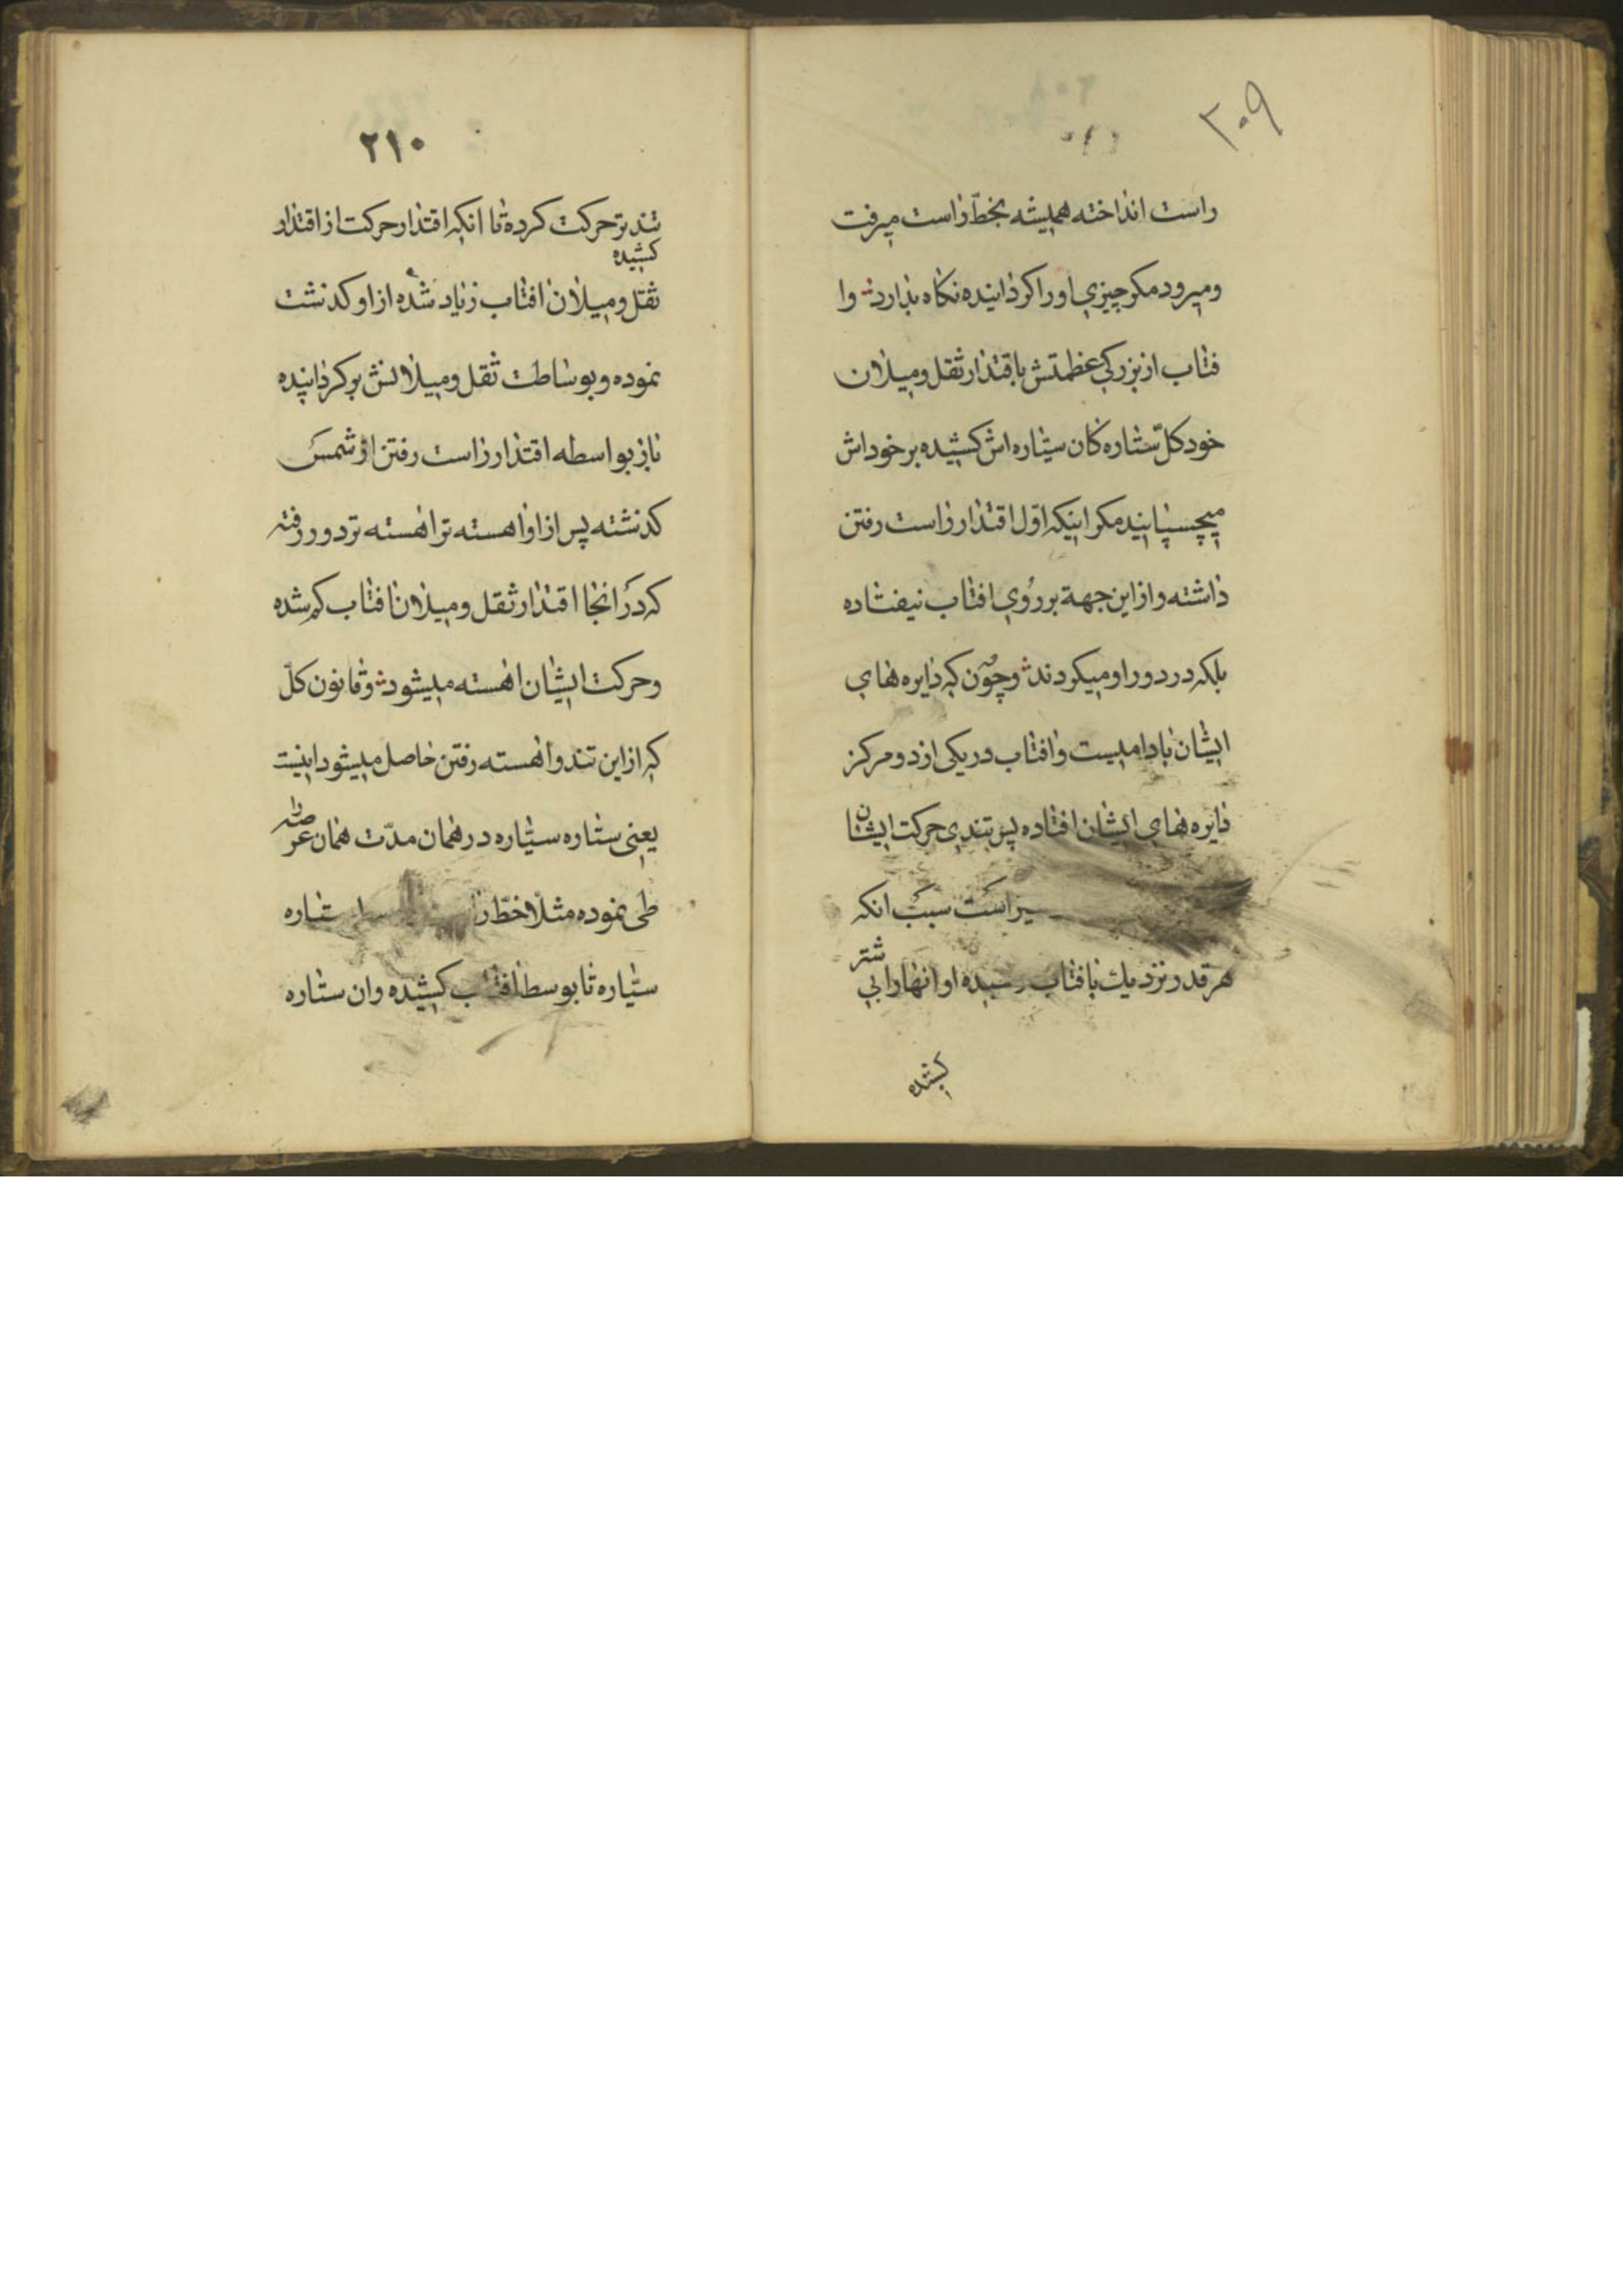 ۲۰۹
راست انداخته همیشه بخطّ راست میرفت
ومیرود مکر چیزی اورا کرداینده نکاه بدارد وا
فتاب از بزرکی عظمتش باقتدار ثقل ومیلان
خود کلّ ستاره کان سیّاره اش کشیده بر خوداش
میچسپانید مکر اینکه اوّل اقتدار راست رفتن
داشته وازاین جهة بر رُوی افتاب نیفتاده
بلکه در دور او میکردند وچون که دایره های
ایشان بادامیست وافتاب در یکی از دو مرکز
دایره های ایشان افتاده پس تندی حرکت ایشان
سبب انکه
هر قدر نزدیك بافتاب رسیده او انهارا بیشتر
کشیده
۲۱۰
تندتر حرکت کرده تا انکه اقتدار حرکت از اقتدار
کشیده
ثقل ومیلان افتاب زیاد شده از او کذشت
نموده وبوساطت ثقل ومیلانش برکردانیده
باز بواسطه اقتدار راست رفتن از شمس
کذشته پس از او اهسته تر اهسته تر دور رفته
که در انجا اقتدار ثقل ومیلان افتاب کم شده
وحرکت ایشان اهسته میشود وقانون کلّ
که از این تند واهسته رفتن حاصل میشود اینست
یعنی ستاره سیّاره در همان مدّت همان عرصه را
طی نموده مثلا خطّ ستاره
سیّاره تا بوسط افتاب کشیده وان ستاره